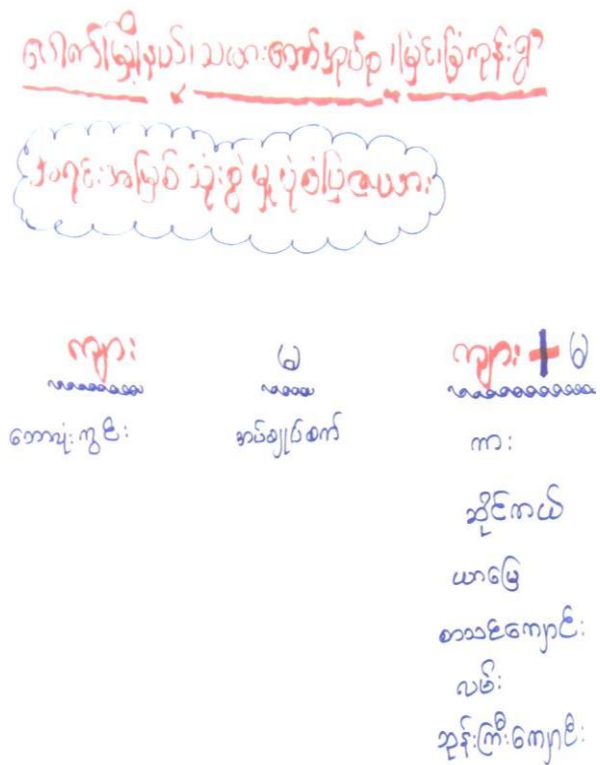 ပေါက်မြို့နယ်၊ သယားတော်အုပ်စု ၊မြင်းခြံကုန်းရွာ
အရင်းအမြစ် သုံးစွဲမှု ပုံစံပြဇယား
ကျား မ ကျား + မ
ဘောလုံးကွင်း အပ်ချုပ်စက် ကား
ဆိုင်ကယ်
ယာမြေ
စာသင်ကျောင်း
လမ်း
ဘုန်းကြီးကျောင်း